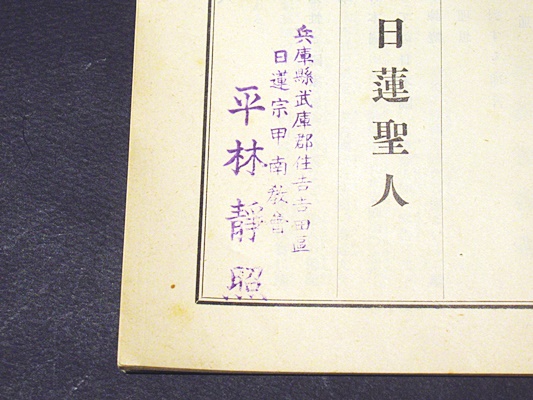 日蓮聖人
兵庫縣武庫郡住吉吉田區
日蓮宗甲南敎會
平林靜照